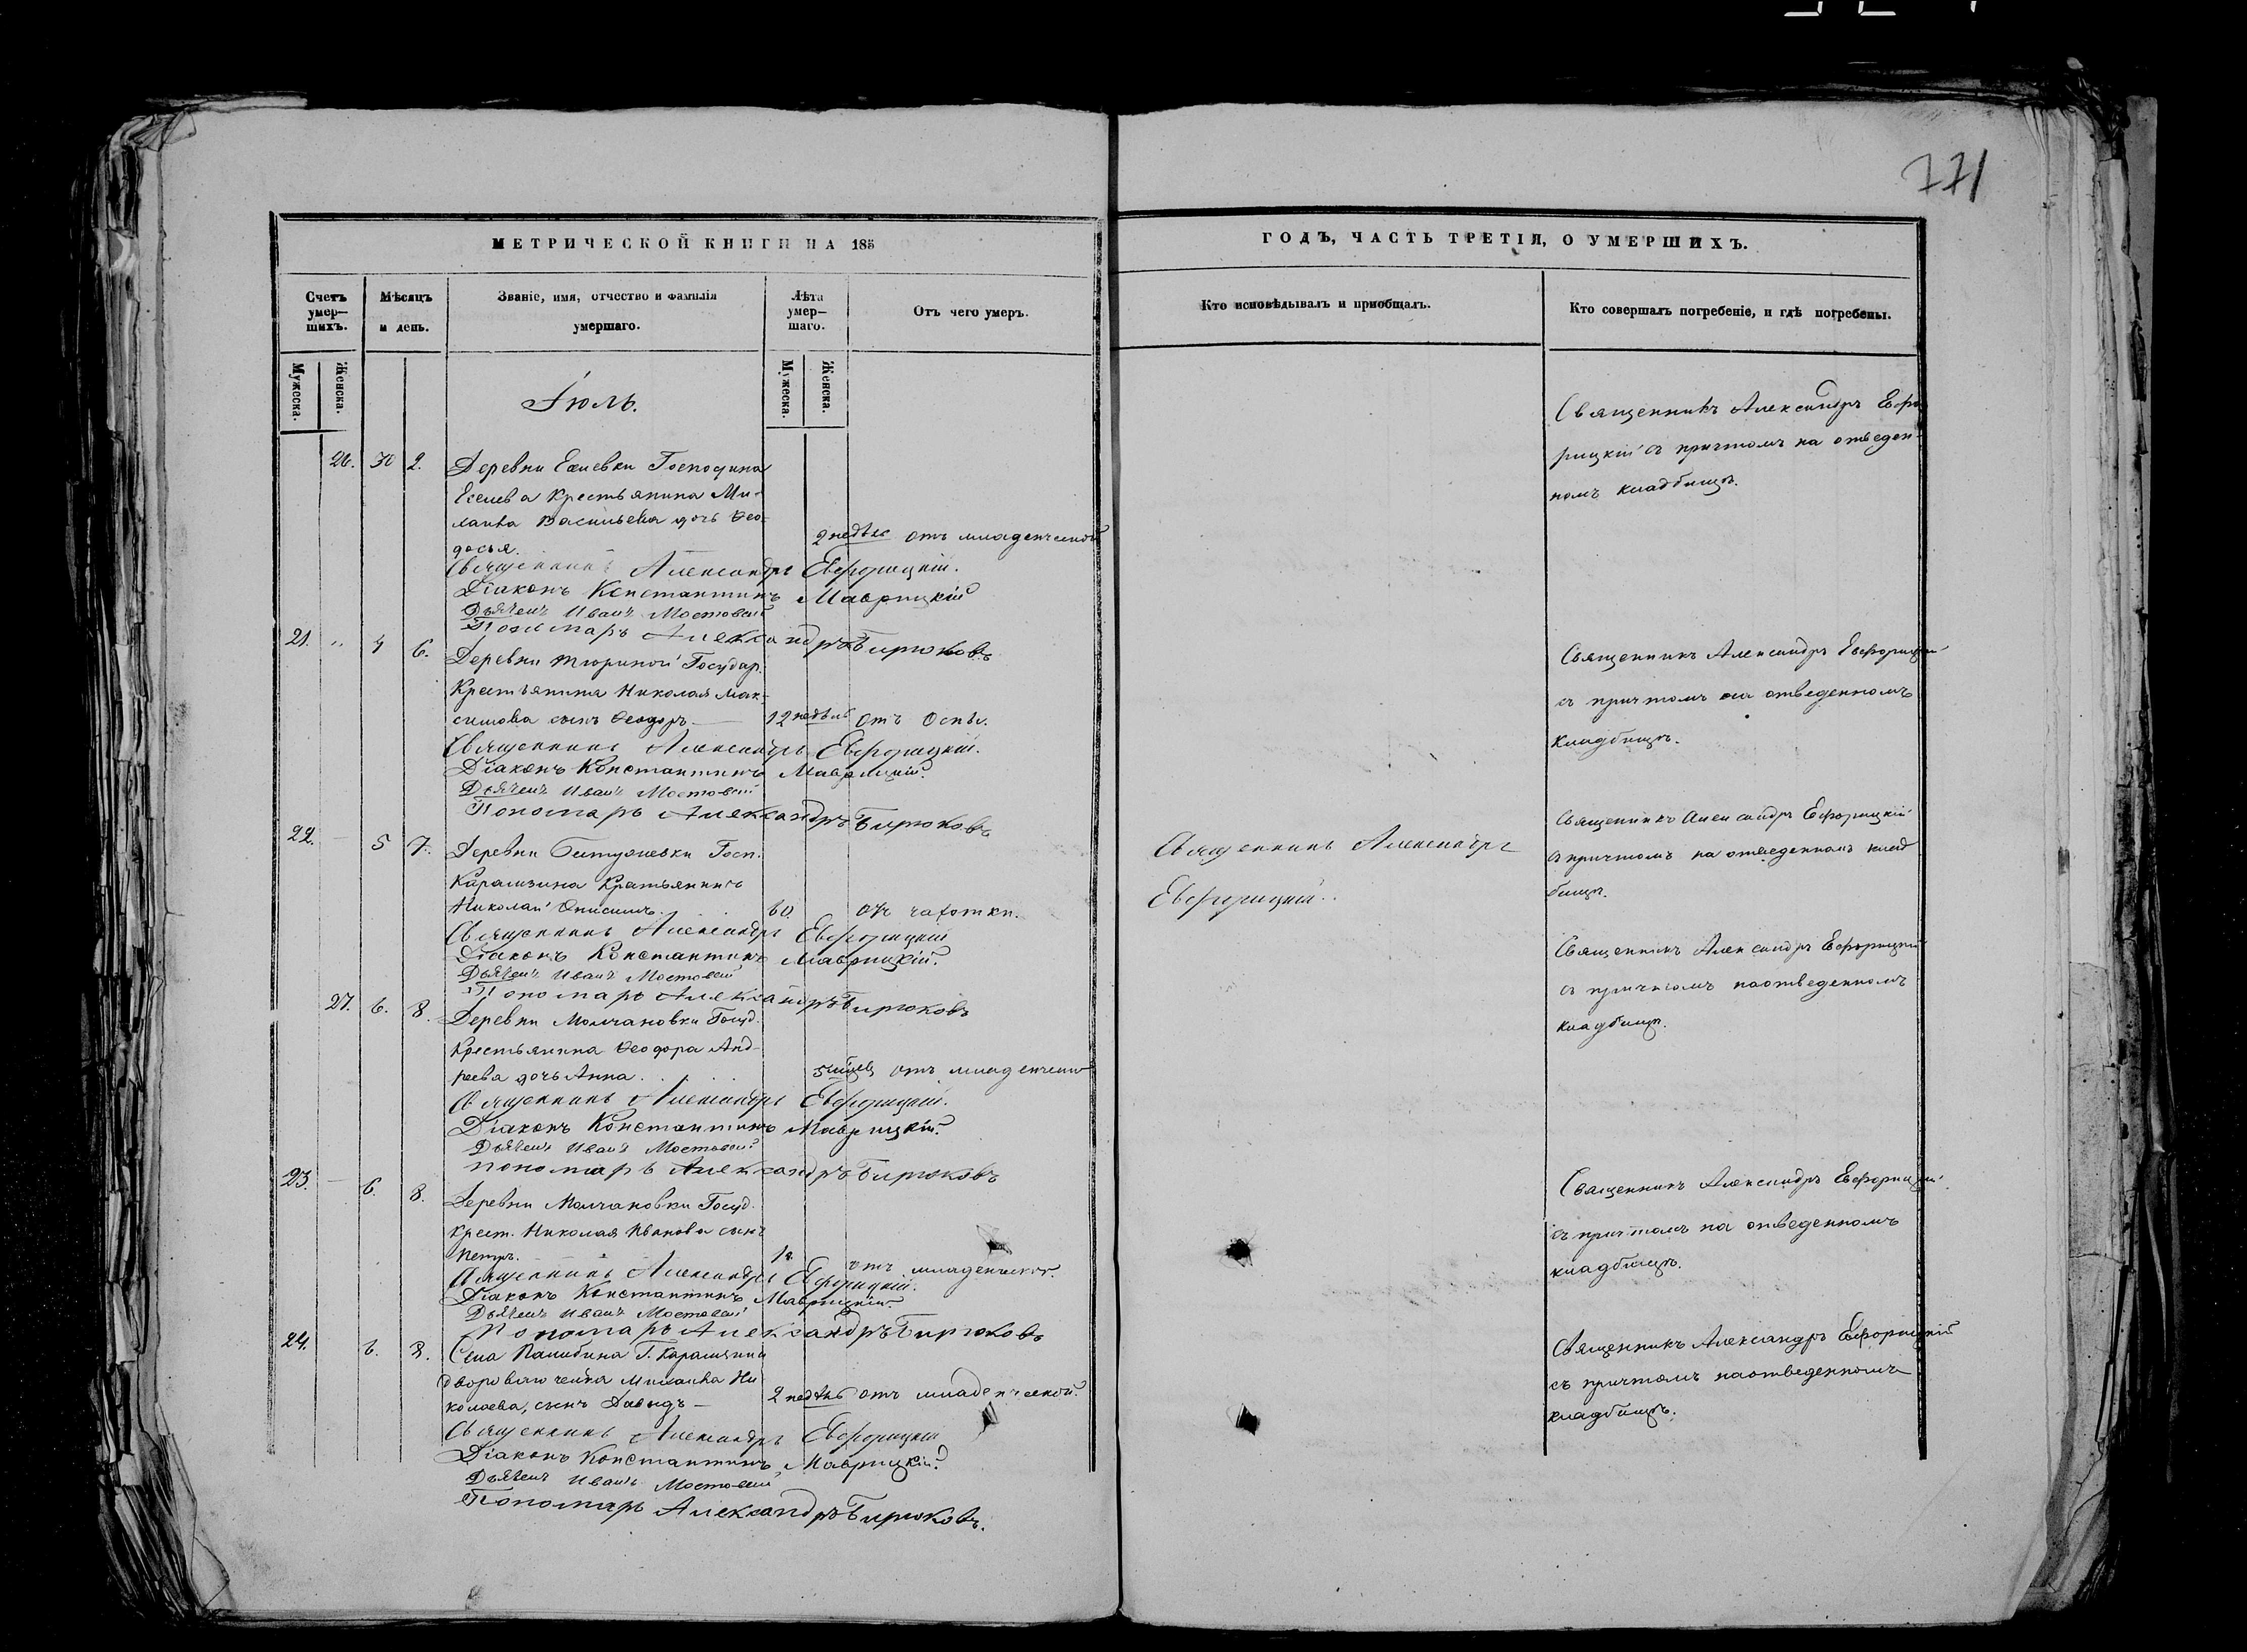 771
МЕТРИЧЕСКОЙ КНИГИ НА 185
ГОДЪ, ЧАСТЬ ТРЕТІЯ, О УМЕРШИХЪ.
Счетъ умер-шихъ.
Мѣсяцъ и день.
Званіе, имя, отчество и фамилія умершаго.
Лѣта умер-шаго.
Отъ чего умеръ.
Кто исповѣдывалъ и пріобщалъ.
Кто совершалъ погребеніе, и гдѣ погребены.
Мужеска.
Женска.
Мужеска.
Женска.
Іюль.
26. 30 2. Деревни Господина
Крестьянина Ми-
хаила Васильева дочь Ѳео-
досья. 2 недѣль отъ младенческой
Священникъ Александръ Евфорицкій.
Діаконъ Константинъ Маврицкій
Дьячекъ Иванъ Мостовой
Пономарь Александръ Бирюковъ
Священникъ Александръ Ефо
рицкій съ причтомъ на отведен-
номъ кладбищѣ.
21. " 4 6. Деревни Тюриной Государ.
Крестьянина Николая Мак-
симова сынъ Ѳеодоръ 12 недѣль отъ Оспы.
Священникъ Александръ Евфорицкій.
Діаконъ Константинъ Маврицкій.
Дьячекъ Иванъ Мостовой
Пономарь Александръ Бирюковъ
Священникъ Александръ Евфорицкій
съ причтомъ на отведенномъ
кладбищѣ.
22. 5 7. Деревни Госп.
Карамзина Крестьянинъ
Николай Онисимъ. 60. отъ чахотки.
Священникъ Александръ Евфорицкій
Діаконъ Константинъ Маврицкій.
Дьячекъ Иванъ Мостовой
Пономарь Александръ Бирюковъ
Священникъ Александръ
Евфорицкій.
Священникъ Александръ Ефорицкій
съ причтомъ на отведенномъ клад
бищѣ.
27. 6. 8. Деревни Молчановки Госуд.
Крестьянина Ѳеодора Анд-
реева дочь Анна. отъ младенческой
Священникъ Александръ Евфорицкій.
Діаконъ Константинъ Маврицкій.
Дьячекъ Иванъ Мостовой
Пономарь Александръ Бирюковъ
Священникъ Александръ Ефорицкій
съ причтомъ наотведенномъ
кладбищѣ.
23. 6. 8. Деревни Молчановки Госуд.
Крест. Николая Иванова сынъ
Петръ. 1 г. отъ младенческой.
Священникъ Александръ Евфорицкій.
Діаконъ Константинъ Маврицкій.
Дьячекъ Иванъ Мостовой
Пономарь Александръ Бирюковъ
Священникъ Александръ Ефорицкій
съ причтомъ на отведенномъ
кладбищѣ.
24. 6. 8. Села Г. Карамзина
Михаила Ни
колаева, сынъ Давыдъ 2 недѣль отъ младенческой.
Священникъ Александръ Евфорицкій
Діаконъ Константинъ Маврицкій.
Дьячекъ Иванъ Мостовой
Пономарь Александръ Бирюковъ.
Священникъ Александръ Ефорицкій
съ причтомъ наотведенномъ
кладбищѣ.